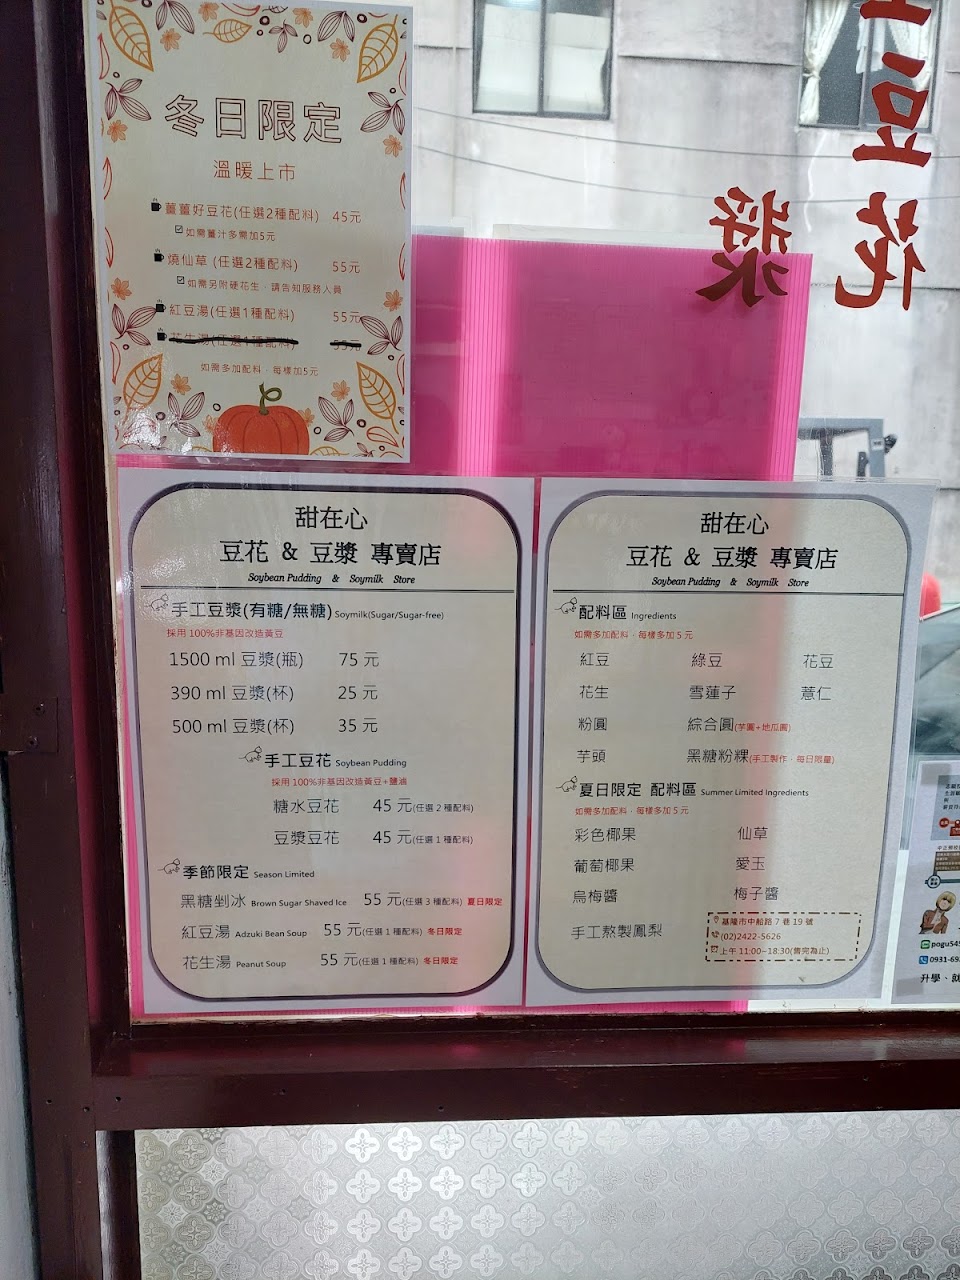 冬日限定
溫暖上市
薑薑好豆花(任選2種配料) 45元
如需薑汁多需加5元
燒仙草 (任選2種配料) 55元
如需另附硬花生，請告知服務人員
紅豆湯(任選1種配料) 55元
花生湯(任選1種配料) 55元
如需多加配料，每樣加5元
豆花
漿
甜在心
豆花 & 豆漿 專賣店
Soybean Pudding & Soymilk Store
手工豆漿(有糖/無糖) Soymilk(Sugar/Sugar-free)
採用 100%非基因改造黃豆
1500 ml 豆漿(瓶) 75 元
390 ml 豆漿(杯) 25 元
500 ml 豆漿(杯) 35 元
手工豆花 Soybean Pudding
採用 100%非基因改造黃豆+鹽滷
糖水豆花 45 元(任選 2 種配料)
豆漿豆花 45 元(任選 1 種配料)
季節限定 Season Limited
黑糖剉冰 Brown Sugar Shaved Ice 55 元(任選 3 種配料) 夏日限定
紅豆湯 Adzuki Bean Soup 55 元(任選 1 種配料) 冬日限定
花生湯 Peanut Soup 55 元(任選 1 種配料) 冬日限定
甜在心
豆花 & 豆漿 專賣店
Soybean Pudding & Soymilk Store
配料區 Ingredients
如需多加配料，每樣多加 5 元
紅豆 綠豆 花豆
花生 雪蓮子 薏仁
粉圓 綜合圓(芋圓+地瓜圓)
芋頭 黑糖粉粿(手工製作，每日限量)
夏日限定 配料區 Summer Limited Ingredients
如需多加配料，每樣多加 5 元
彩色椰果 仙草
葡萄椰果 愛玉
烏梅醬 梅子醬
手工熬製鳳梨
基隆市中船路 7 巷 19 號
(02)2422-5626
上午 11:00~18:30(售完為止)
pogu545
0931-69
升學、就